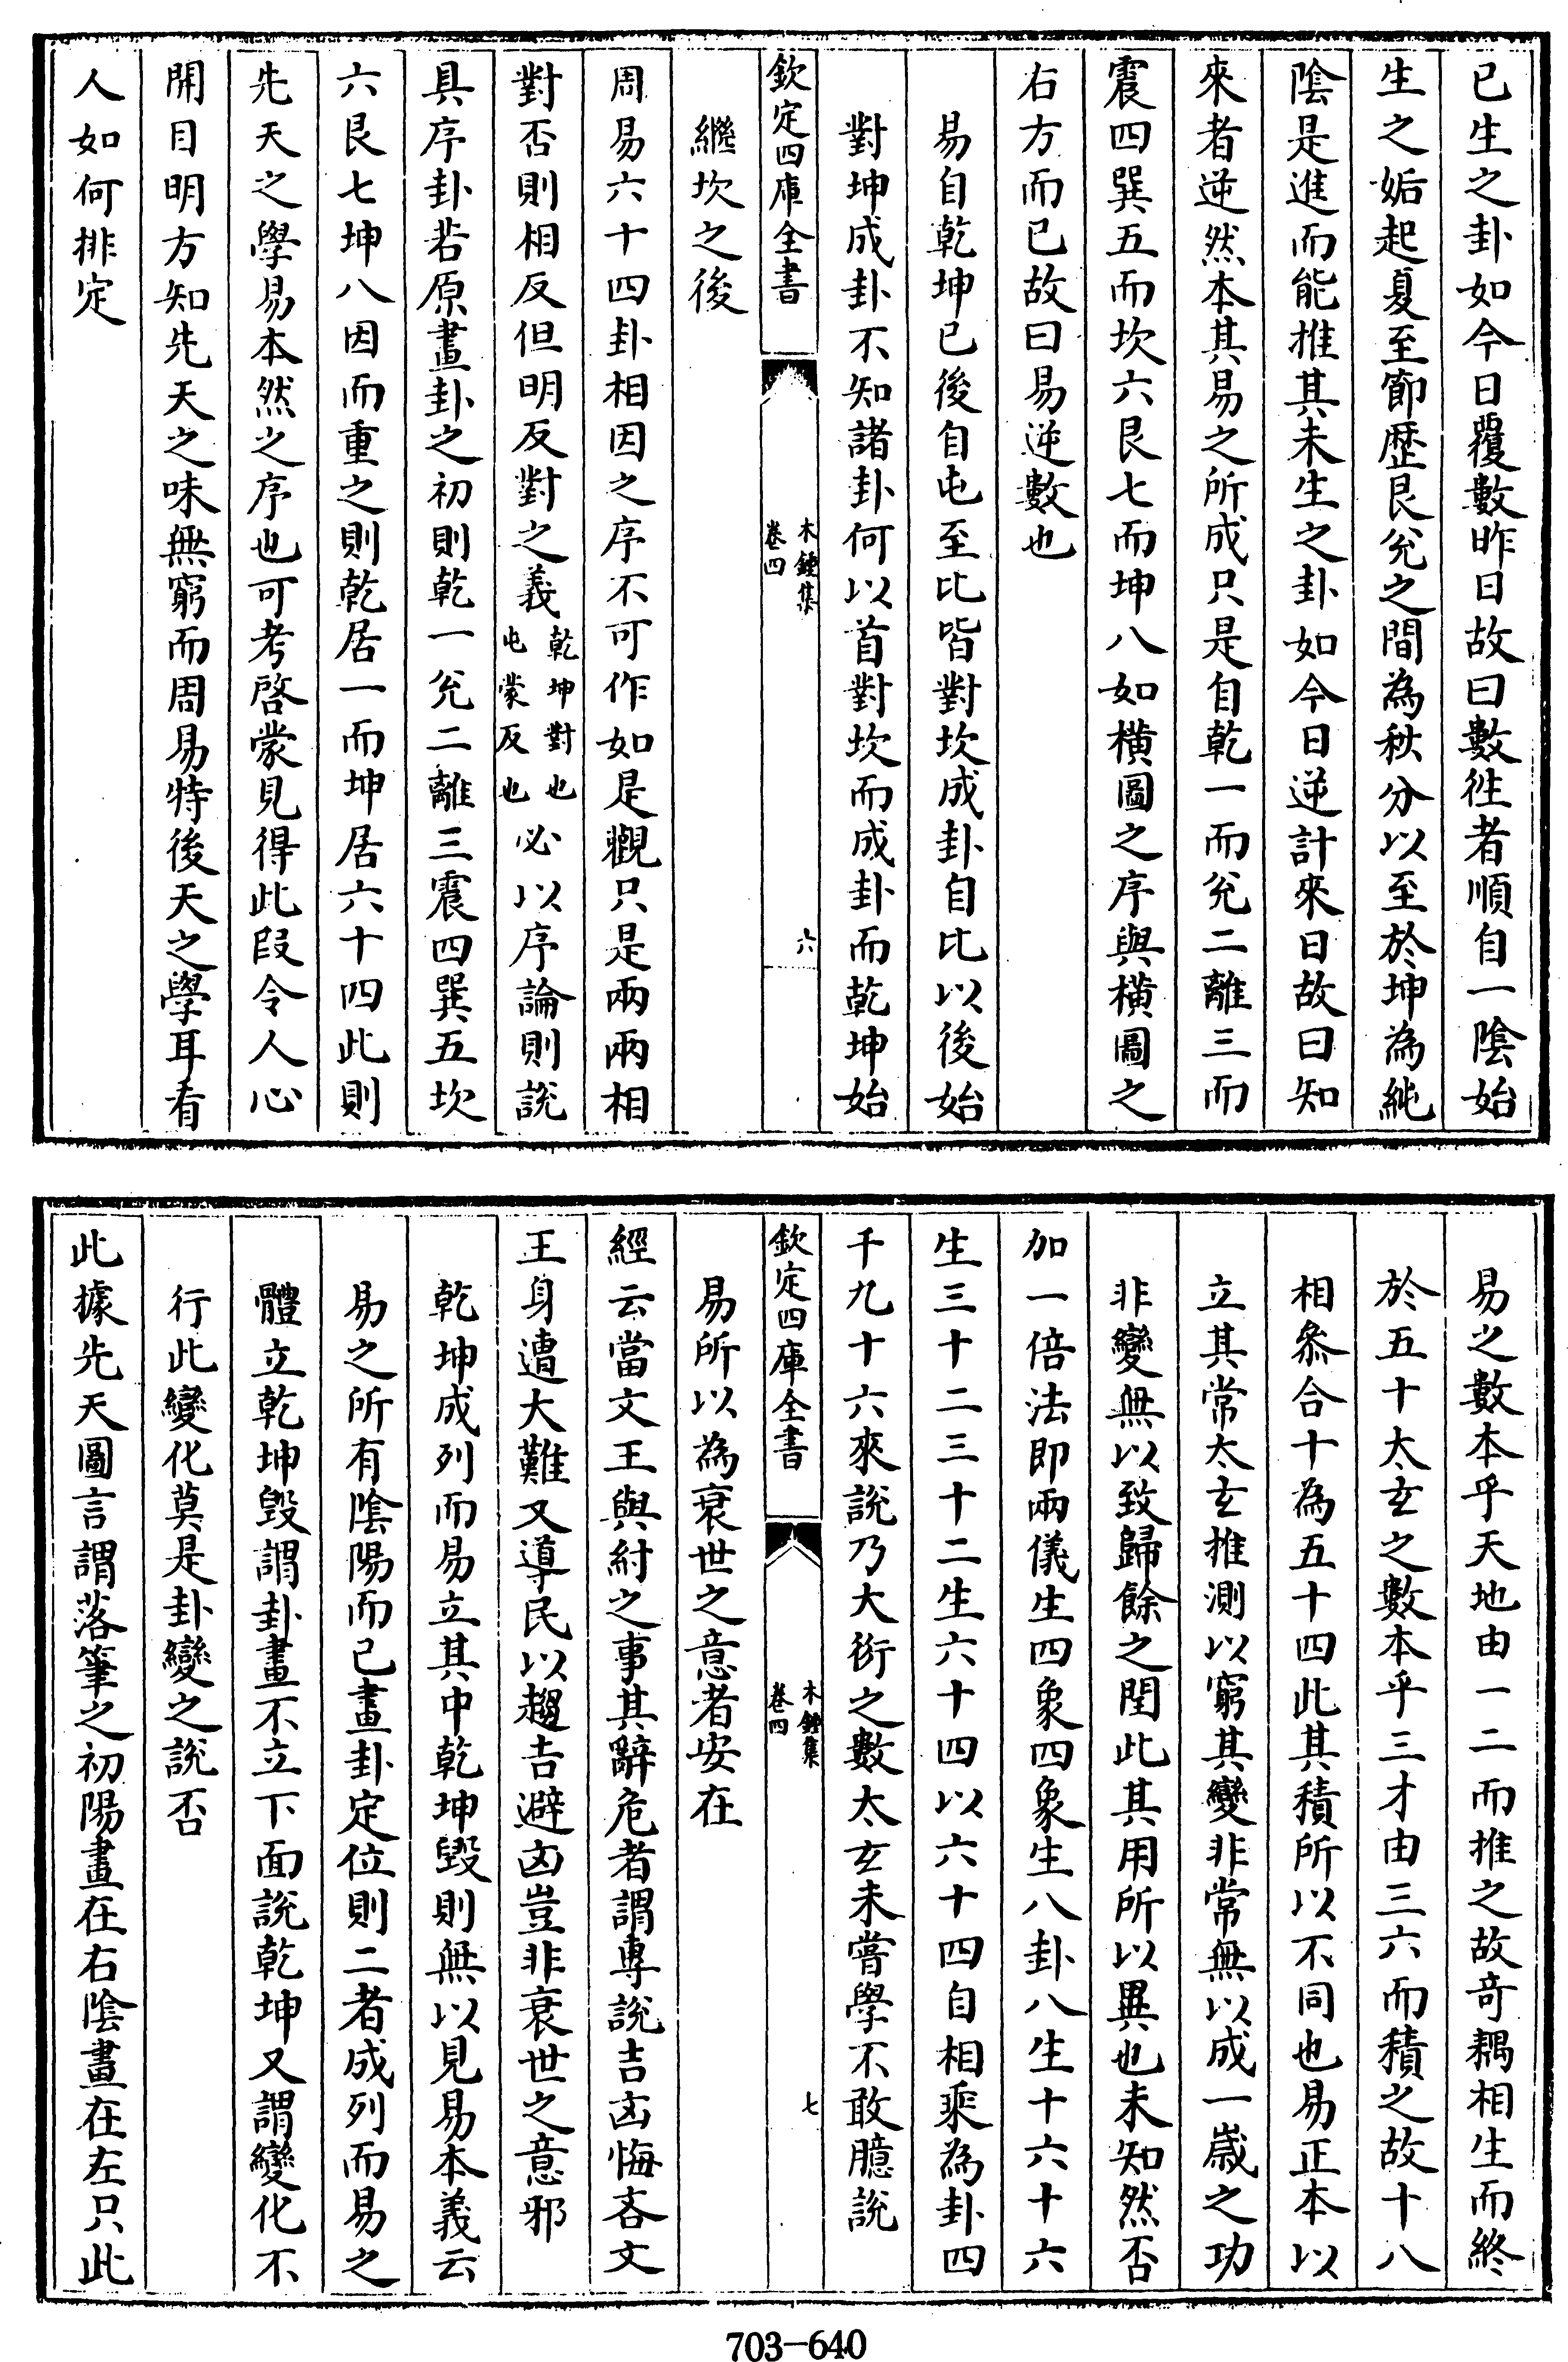 已生之卦如今日覆數昨日故曰數徃者順自一陰始
生之姤起夏至節歷艮兊之間為秋分以至於坤為純
陰是進而能推其未生之卦如今日逆計來日故曰知
來者逆然本其易之所成只是自乾一而兊二離三而
震四巽五而坎六艮七而坤八如橫圖之序與橫圖之
右方而已故曰易逆數也
易自乾坤已後自屯至比皆對坎成卦自比以後始
對坤成卦不知諸卦何以首對坎而成卦而乾坤始
欽定四庫全書
木鍾集
卷四
六
繼坎之後
周易六十四卦相因之序不可作如是觀只是兩兩相
對否則相反但明反對之義乾坤對也屯蒙反也必以序論則說
具序卦若原畫卦之初則乾一兊二離三震四巽五坎
六艮七坤八因而重之則乾居一而坤居六十四此則
先天之學易本然之序也可考啓蒙見得此段令人心
開目明方知先天之味無窮而周易特後天之學耳看
人如何排定
易之數本乎天地由一二而推之故竒耦相生而終
於五十太𤣥之數本乎三才由三六而積之故十八
相叅合十為五十四此其積所以不同也易正本以
立其常太𤣥推測以窮其變非常無以成一歲之功
非變無以致歸餘之閏此其用所以異也未知然否
加一倍法即兩儀生四象四象生八卦八生十六十六
生三十二三十二生六十四以六十四自相乘為卦四
千九十六來說乃大衍之數太𤣥未嘗學不敢臆說
欽定四庫全書
木鍾集
卷四
七
易所以為衰世之意者安在
經云當文王與紂之事其辭危者謂專說吉凶悔吝文
王身遭大難又導民以趨吉避凶豈非衰世之意邪
乾坤成列而易立其中乾坤毀則無以見易本義云
易之所有陰陽而已畫卦定位則二者成列而易之
體立乾坤毀謂卦畫不立下面說乾坤又謂變化不
行此變化莫是卦變之說否
此據先天圖言謂落筆之初陽畫在右陰畫在左只此
703-640